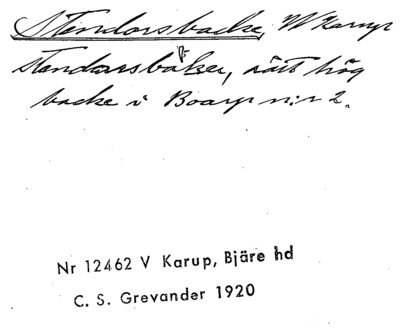 Stendorsbacke, W Karup
stendorsbaken, rätt hög
backe i Boarp n:r 2.
Nr 12462 V Karup, Bjäre hd
C. S. Grevander 1920